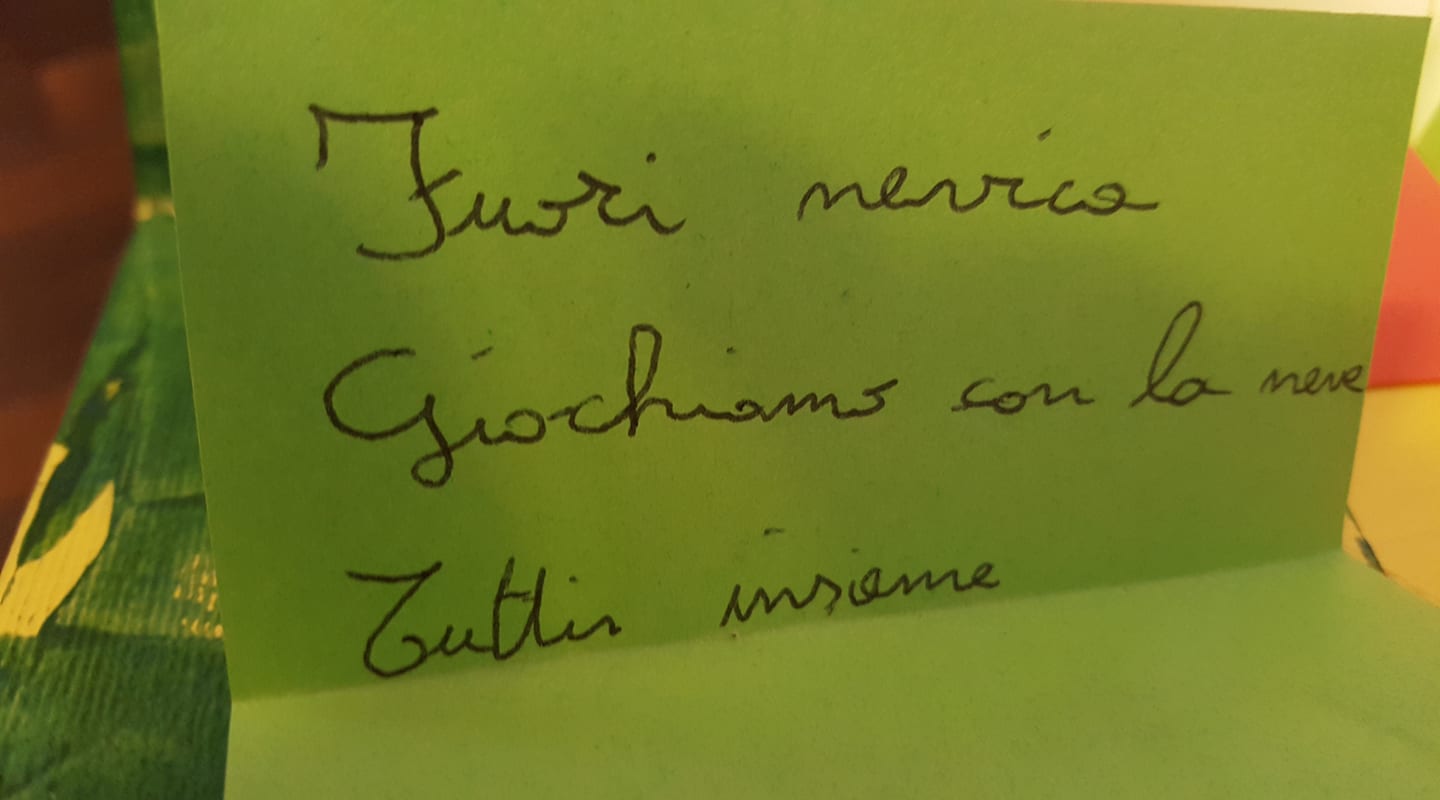 Fuori nevica
Giochiamo con la neve
Tutti insieme